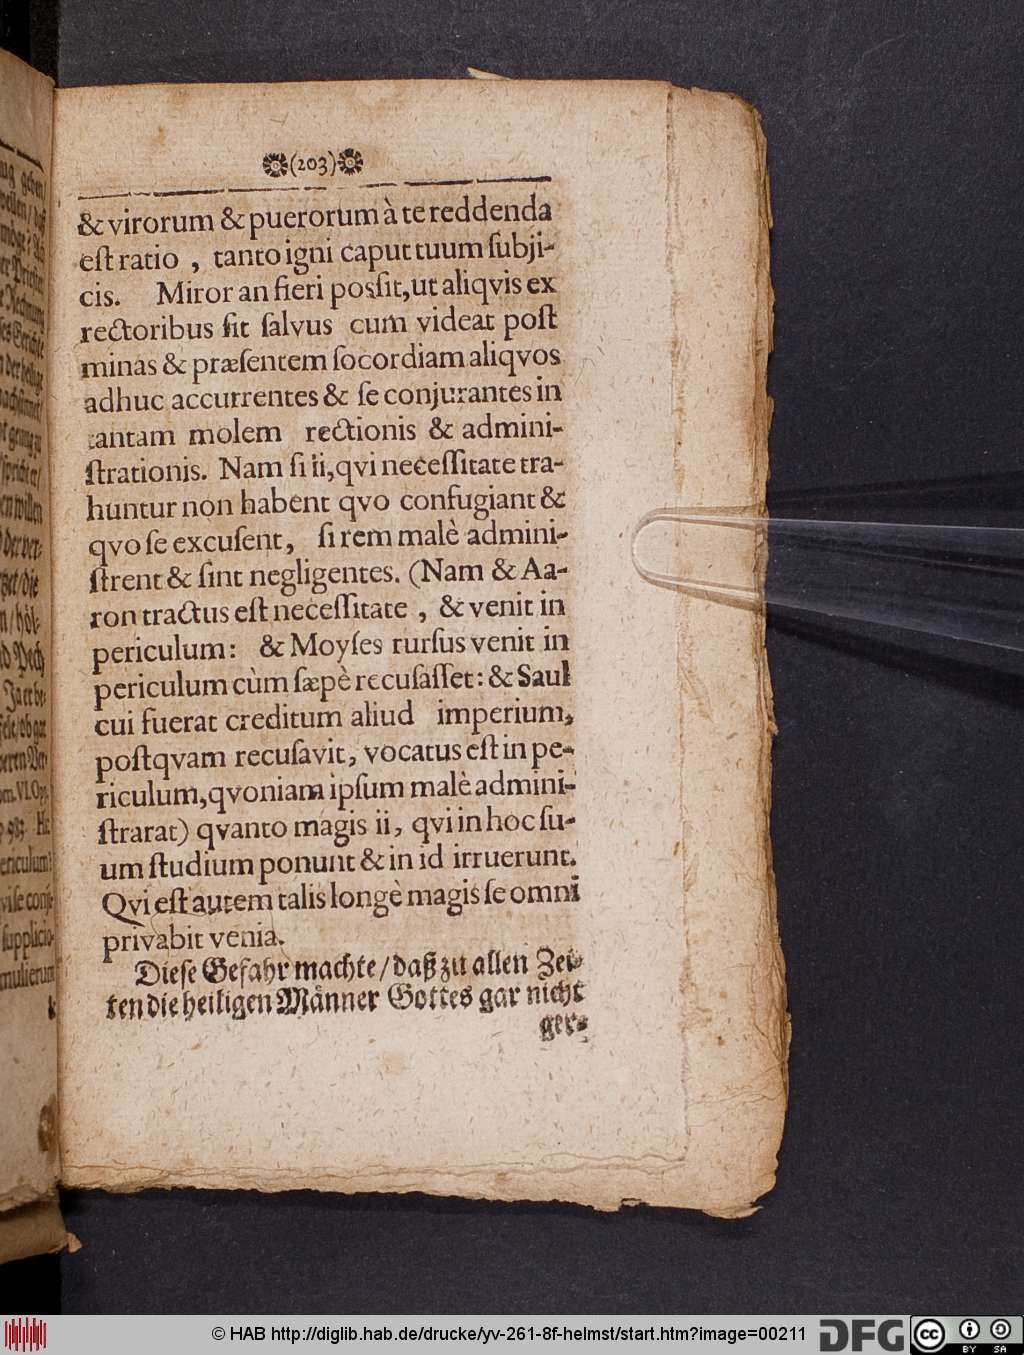 (203)
& virorum & puerorum à te reddenda
eſt ratio , tanto igni caput tuum ſubji-
cis. Miror an fieri poſſit, ut aliqvis ex
rectoribus ſit ſalvus cum videat poſt
minas & præſentem ſocordiam aliqvos
adhuc accurrentes & ſe conjurantes in
tantam molem rectionis & admini-
ſtrationis. Nam ſi ii, qvi neceſſitate tra-
huntur non habent qvo confugiant &
qvo ſe excuſent, ſi rem malè admini-
ſtrent & ſint negligentes. (Nam & Aa-
ron tractus eſt neceſſitate , & venit in
periculum: & Moyſes rurſus venit in
periculum cùm ſæpè recuſaſſet: & Saul
cui fuerat creditum aliud imperium,
poſtqvam recuſavit, vocatus eſt in pe-
riculum, qvoniam ipſum malè admini-
ſtrarat) qvanto magis ii, qvi in hoc ſu-
um ſtudium ponunt & in id irruerunt.
Qvi eſt autem talis longè magis ſe omni
privabit venia.
Dieſe Gefahr machte / daß zu allen Zei-
ten die heiligen Männer Gottes gar nicht
ger-
© HAB http://diglib.hab.de/drucke/yv-261-8f-helmst/start.htm?image=00211
DFG
cc BY SA